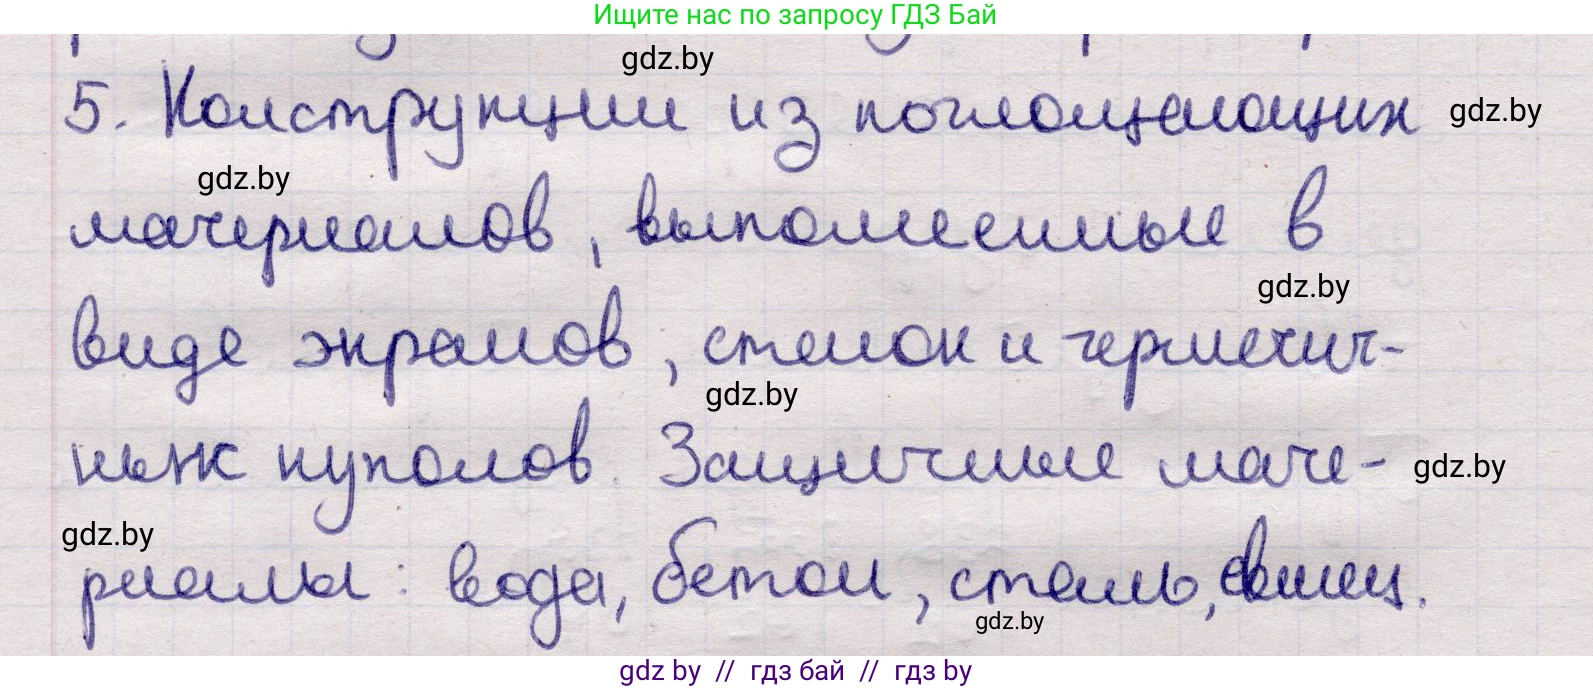 Ищите нас по запросу ГДЗ Бай
gdz.by
5. Конструкции из поглощающих gdz.by
gdz.by
материалов, выполненные в
gdz.by
виде экранов, стенок и герметич-
gdz.by
ных куполов. Защитные мате- gdz.by
gdz.by
риалы: вода, бетон, сталь, свинец.
gdz.by
gdz by // гдз бай // гдз by